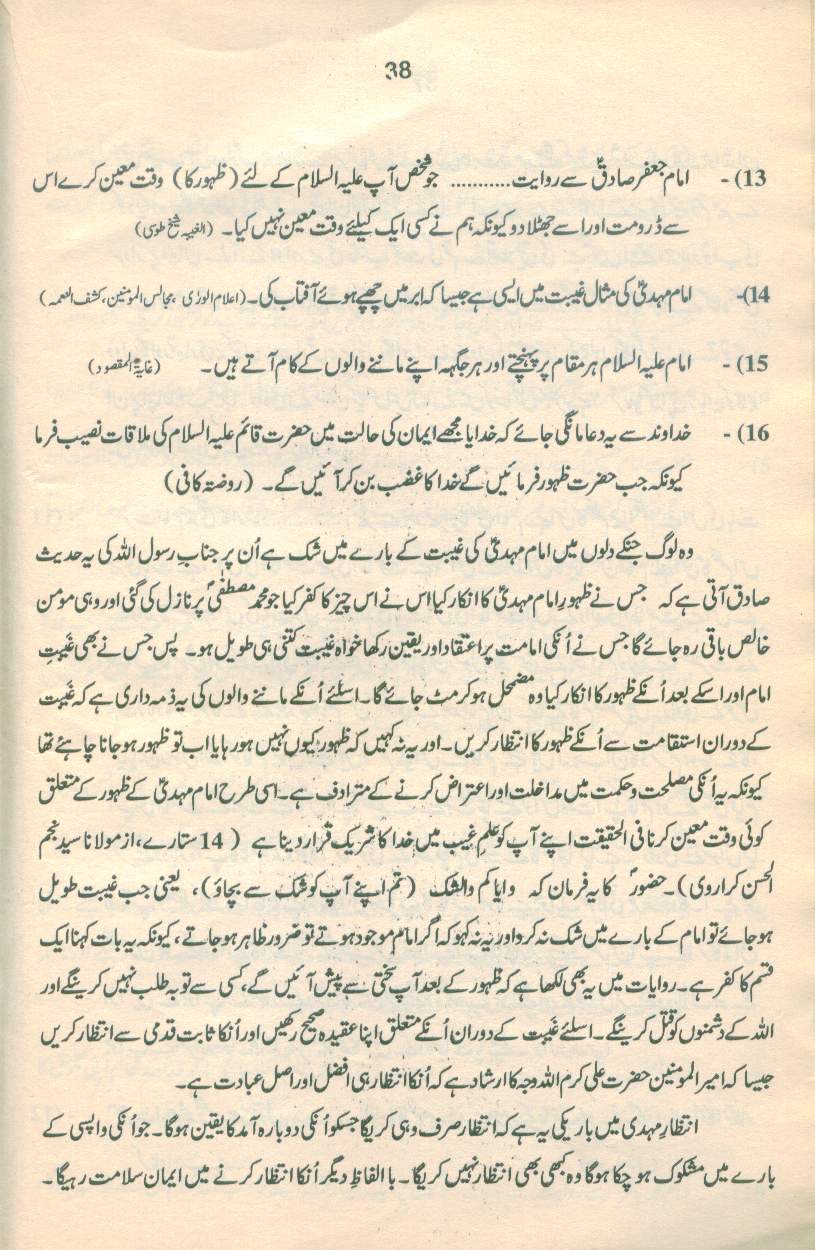 38
13)- امام جعفر صادقؑ سے روایت........... جو شخص آپ علیہ السلام کے لئے (ظہور کا) وقت معین کرے اس
سے ڈرو مت اور اسے جھٹلا دو کیونکہ ہم نے کسی ایک کیلئے وقت معین نہیں کیا۔ (الغیبہ شیخ طوسی)
14)- امام مہدیؑ کی مثال غیبت میں ایسی ہے جیسا کہ ابر میں چھپے ہوئے آفتاب کی۔ (اعلام الورٰی، مجالس المومنین، کشف الغمہ)
15)- امام علیہ السلام ہر مقام پر پہنچتے اور ہر جگہہ اپنے ماننے والوں کے کام آتے ہیں۔ (غایۃ المقصود)
16)- خداوند سے یہ دعا مانگی جائے کہ خدایا مجھے ایمان کی حالت میں حضرت قائم علیہ السلام کی ملاقات نصیب فرما
کیونکہ جب حضرت ظہور فرمائیں گے خدا کا غضب بن کر آئیں گے۔ (روضتہ کافی)
وہ لوگ جنکے دلوں میں امام مہدیؑ کی غیبت کے بارے میں شک ہے اُن پر جنابِ رسول اللہ کی یہ حدیث
صادق آتی ہے کہ جس نے ظہورِ امام مہدیؑ کا انکار کیا اس نے اس چیز کا کفر کیا جو محمد مصطفٰیؐ پر نازل کی گئی اور وہی مومن
خالص باقی رہ جائے گا جس نے اُنکی امامت پر اعتقاد اور یقین رکھا خواہ غیبت کتنی ہی طویل ہو۔ پس جس نے بھی غَیبتِ
امام اور اسکے بعد اُنکے ظہور کا انکار کیا وہ مضمحل ہو کر مٹ جائے گا۔ اسلئے اُنکے ماننے والوں کی یہ ذمہ داری ہے کہ غَیبت
کے دوران استقامت سے اُنکے ظہور کا انتظار کریں۔ اور یہ نہ کہیں کہ ظہور کیوں نہیں ہو رہا یا اب تو ظہور ہو جانا چاہئے تھا
کیونکہ یہ اُنکی مصلحت و حکمت میں مداخلت اور اعتراض کرنے کے مترادف ہے۔ اسی طرح امام مہدیؑ کے ظہور کے متعلق
کوئی وقت معین کرنا فی الحقیقت اپنے آپ کو علمِ غیب میں خدا کا شریک قرار دینا ہے (14 ستارے، از مولانا سید نجم
الحسن کراروی)۔ حضورؐ کا یہ فرمان کہ وایاکم والشک (تم اپنے آپ کو شک سے بچاؤ)، یعنی جب غیبت طویل
ہو جائے تو امام کے بارے میں شک نہ کرو اور یہ نہ کہو کہ اگر امام موجود ہوتے تو ضرور ظاہر ہو جاتے، کیونکہ یہ بات کہنا ایک
قسم کا کفر ہے۔ روایات میں یہ بھی لکھا ہے کہ ظہور کے بعد آپ سختی سے پیش آئیں گے، کسی سے توبہ طلب نہیں کرینگے اور
اللہ کے دشمنوں کو قتل کرینگے۔ اسلئے غَیبت کے دوران اُنکے متعلق اپنا عقیدہ صحیح رکھیں اور اُنکا ثابت قدمی سے انتظار کریں
جیسا کہ امیر المومنین حضرت علی کرم اللہ وجہ کا ارشاد ہے کہ اُنکا انتظار ہی افضل اور اصل عبادت ہے۔
انتظارِ مہدی میں باریکی یہ ہے کہ انتظار صرف وہی کریگا جسکو اُنکی دوبارہ آمد کا یقین ہوگا۔ جو اُنکی واپسی کے
بارے میں مشکوک ہو چکا ہوگا وہ کبھی بھی انتظار نہیں کریگا۔ باالفاظِ دیگر اُنکا انتظار کرنے میں ایمان سلامت رہیگا۔